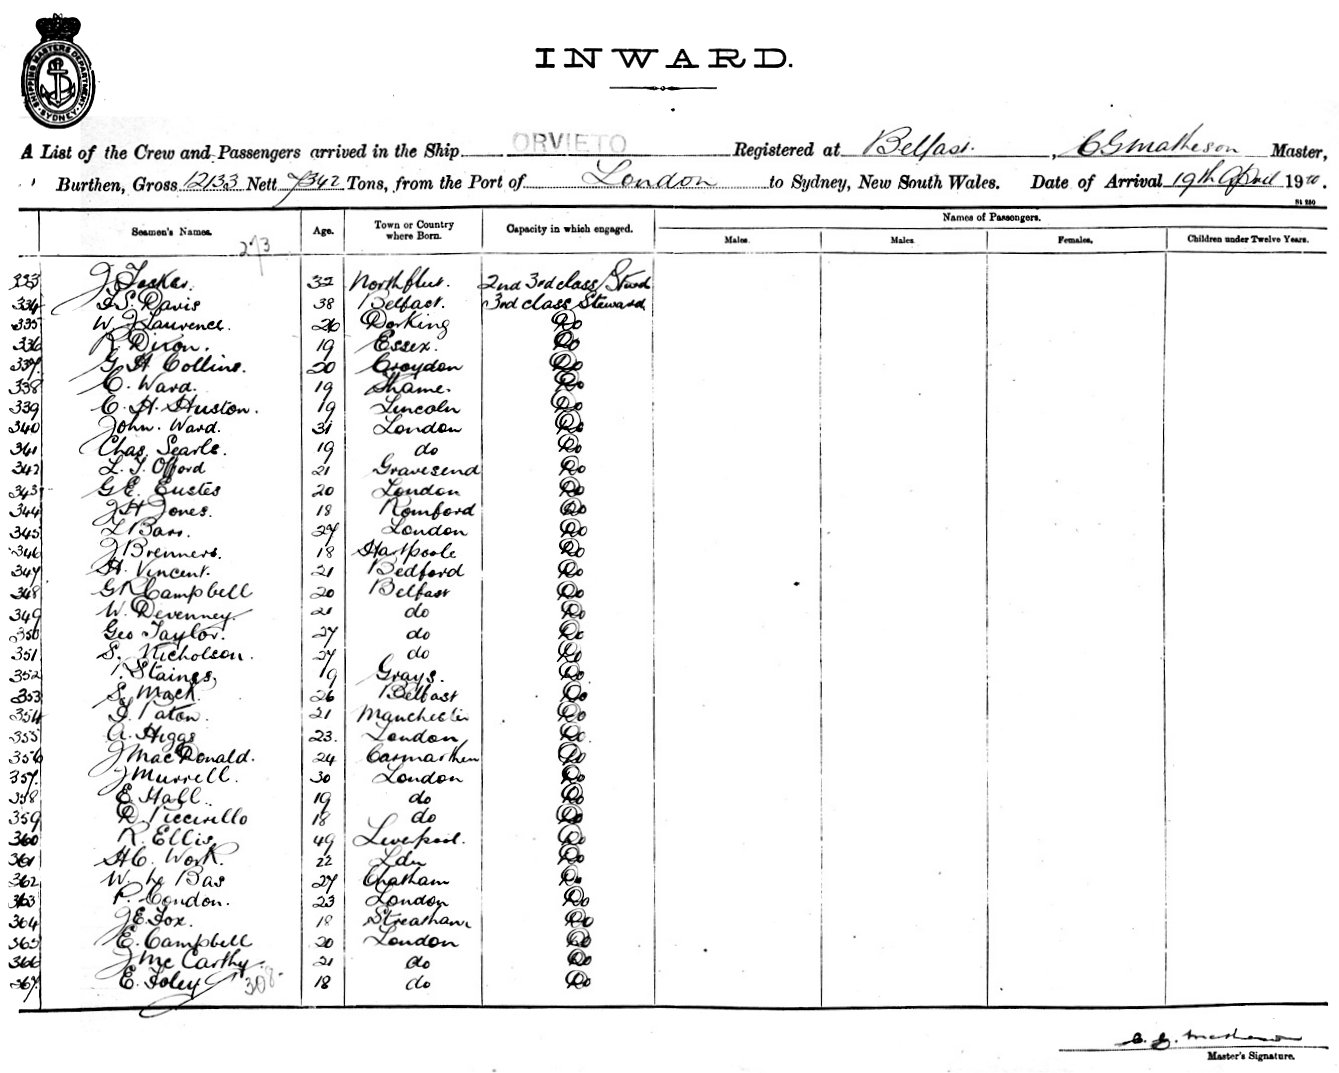 SHIPPING MASTERS DEPARTMENT. SYDNEY.
INWARD.
A List of the Crew and Passengers arrived in the Ship ORVIETO Registered at Belfast. , C G Matheson Master,
Burthen, Gross 12133 Nett 7342 Tons, from the Port of London to Sydney, New South Wales. Date of Arrival 19th April 1910.
Seamen's Names. Age. Town or Country where Born. Capacity in which engaged. Names of Passengers.
Males. Males. Females. Children under Twelve Years.
273
333 J 32 Northfleet. 2nd 3rd class Stwd
334 Davis 38 Belfast. 3rd class Steward
335 W. J Laurence. 26 Dorking Do
336 R. Dixon. 19 Essex. Do
337 G H Collins. 20 Croydon Do
338 C. Ward. 19 Thame. Do
339 C. H. Huston. 19 Lincoln Do
340 John Ward. 31 London Do
341 Chas. Searle. 19 do Do
342 L. J. Offord 21 Gravesend Do
343 G E. Eustes 20 London Do
344 J H Jones. 18 Romford Do
345 L Bars. 27 London Do
346 J Brenners. 18 Hartpoole Do
347 H. Vincent. 21 Bedford Do
348 G R Campbell 20 Belfast Do
349 W. Devenney. 21 do Do
350 Geo Taylor. 27 do Do
351 S. Nicholson. 27 do Do
352 Staines, 19 Grays. Do
353 S. Mack. 26 Belfast Do
354 Paton. 21 Manchester Do
355 A. Higgs 23. London Do
356 J MacDonald. 24 Carmarthen Do
357 J Murrell. 30 London Do
358 E Hall. 19 do Do
359 D. Piccirillo 18 do Do
360 R. Ellis. 49 Liverpool. Do
361 H C. Work. 22 Ldn Do
362 W. Le Bas 27 Chatham Do
363 P. Condon. 23 London Do
364 J E Fox. 18 Streatham Do
365 E. Campbell 20 London Do
366 J Mc Carthy. 21 do Do
367 E. Foley 308 18 do Do
C. G. Matheson
Master's Signature.